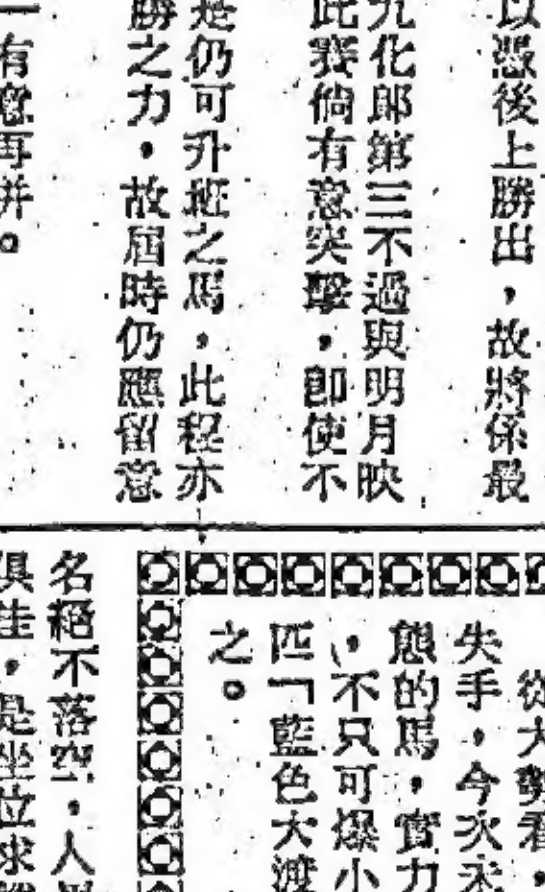 以憑後上勝出，故將係最
九化郎第三不過與明月映
此賽倘有意突擊，即使不
是仍可升班之馬，此程亦
勝之力，故屆時仍應留意
一有意再拼。
從大勢看，
失手，今次永
態的馬，實力
，不只可爆小
匹「藍色大渡
之。
名絕不落空，人
俱佳，是坐位求